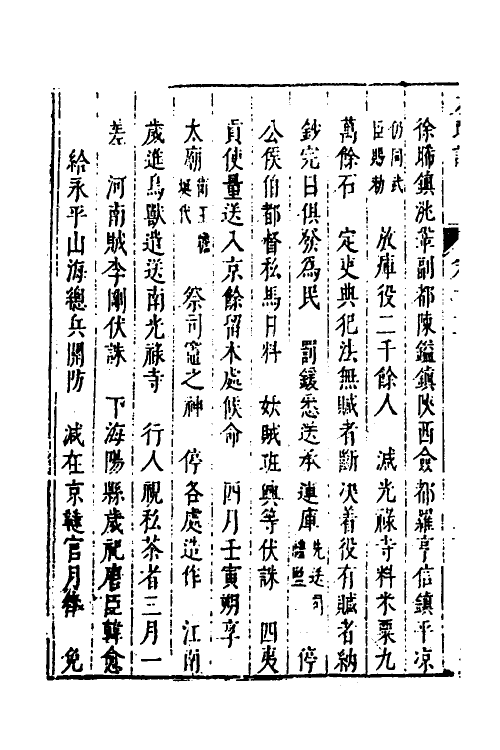 徐晞鎮洮葦副都陳鎰鎮陝西僉都羅亨信鎮平凉
仍同武臣賜勑　放庫役二千餘人　減光祿寺料米粟九
萬餘石　定吏典犯法無贓者斷决着役有贓者納
鈔完日俱發為民　罰鍰悉送承運庫先送司禮監　停
公侯伯都督私馬日料　妖賊班興等伏誅　四夷
貢使量送入京餘留本處候命　四月壬寅朔享
太廟衛王瞻埏代　祭司竈之神　停各處造作　江南
歲進鳥獸造送南光祿寺　行人視私茶者三月一
差　河南賊李剛伏誅　下海陽縣歲祀唐臣韓愈
給永平山海總兵關防　減在京韃官月俸　免